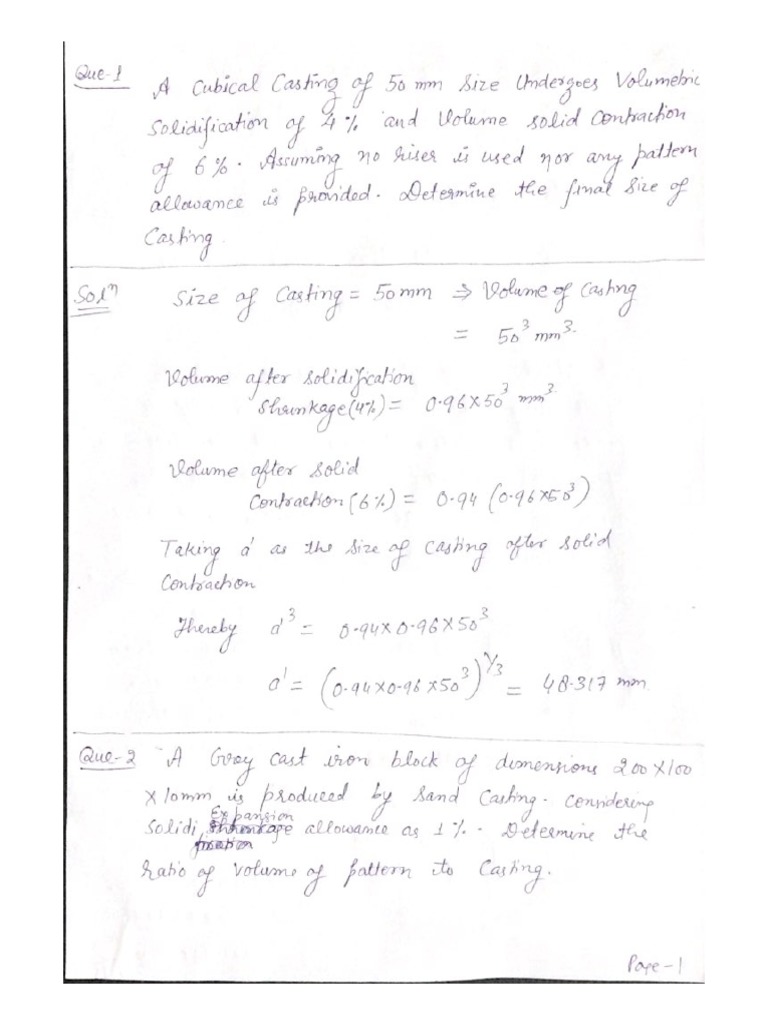 Que-1 A Cubical Casting of 50 mm size Undergoes Volumetric
Solidification of 4% and Volume solid Contraction
of 6%. Assuming no riser is used nor any pattern
allowance is provided. Determine the final size of
Casting.
Solⁿ Size of Casting = 50 mm ⇒ Volume of Casting
= 50³ mm³.
Volume after solidification
shrinkage (4%) = 0.96×50³ mm³
Volume after solid
Contraction (6%) = 0.94 (0.96×50³)
Taking a' as the size of casting after solid
Contraction
Thereby a'³ = 0.94×0.96×50³
a' = (0.94×0.96×50³)^1/3 = 48.317 mm
Que-2 A Gray cast iron block of dimensions 200×100
×10mm is produced by sand casting. Considering
Expansion
solidi shrinkage allowance as 1%. Determine the
fication
ratio of volume of pattern to Casting.
Page-1